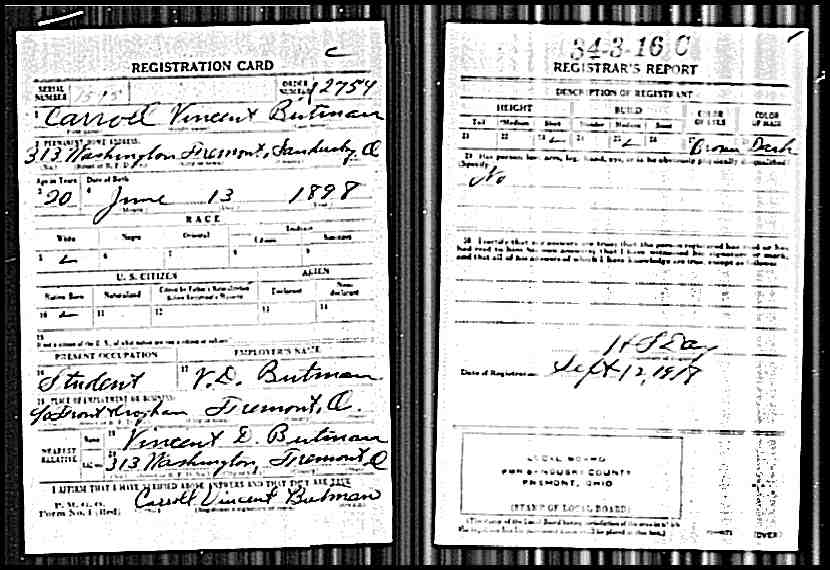 REGISTRATION CARD
SERIAL NUMBER
ORDER NUMBER 12754
1 Carroll Vincent Butman
2 PERMANENT HOME ADDRESS:
313 Washington Fremont, Sandusky, O
Age in Years Date of Birth
3 20 4 June 13 1898
RACE
White Negro Oriental Indian
Citizen Noncitizen
5 6 7 8 9
U. S. CITIZEN ALIEN
Native Born Naturalized Citizen by Father's Naturalization Before Registrant's Majority Declarant Non-declarant
10 11 12 13 14
15
If not a citizen of the U. S., of what nation are you a citizen or subject?
PRESENT OCCUPATION EMPLOYER'S NAME
16 Student 17 V. D. Butman
18 PLACE OF EMPLOYMENT OR BUSINESS:
Front & Croghan Fremont, O.
NEAREST RELATIVE
Name 19 Vincent D. Butman
Address 20 313 Washington, Fremont O
I AFFIRM THAT I HAVE VERIFIED ABOVE ANSWERS AND THAT THEY ARE TRUE
P. M. G. O.
Form No. 1 (Red)
Carroll Vincent Butman
34-3-16 C
REGISTRAR'S REPORT
DESCRIPTION OF REGISTRANT
HEIGHT BUILD COLOR OF EYES COLOR OF HAIR
Tall Medium Short Slender Medium Stout
21 22 23 24 25 26 27 Brown Dark
29 Has person lost arm, leg, hand, eye, or is he obviously physically disqualified?
(Specify.)
No
30 I certify that my answers are true; that the person registered has read or has
had read to him his own answers; that I have witnessed his signature or mark,
and that all of his answers of which I have knowledge are true, except as follows:
H S Day
Date of Registration Sept 12, 1918
LOCAL BOARD
FOR SANDUSKY COUNTY
FREMONT, OHIO
(STAMP OF LOCAL BOARD)
(The stamp of the Local Board having jurisdiction of the area in which
the registrant has his permanent home shall be placed in this box.)
(OVER)